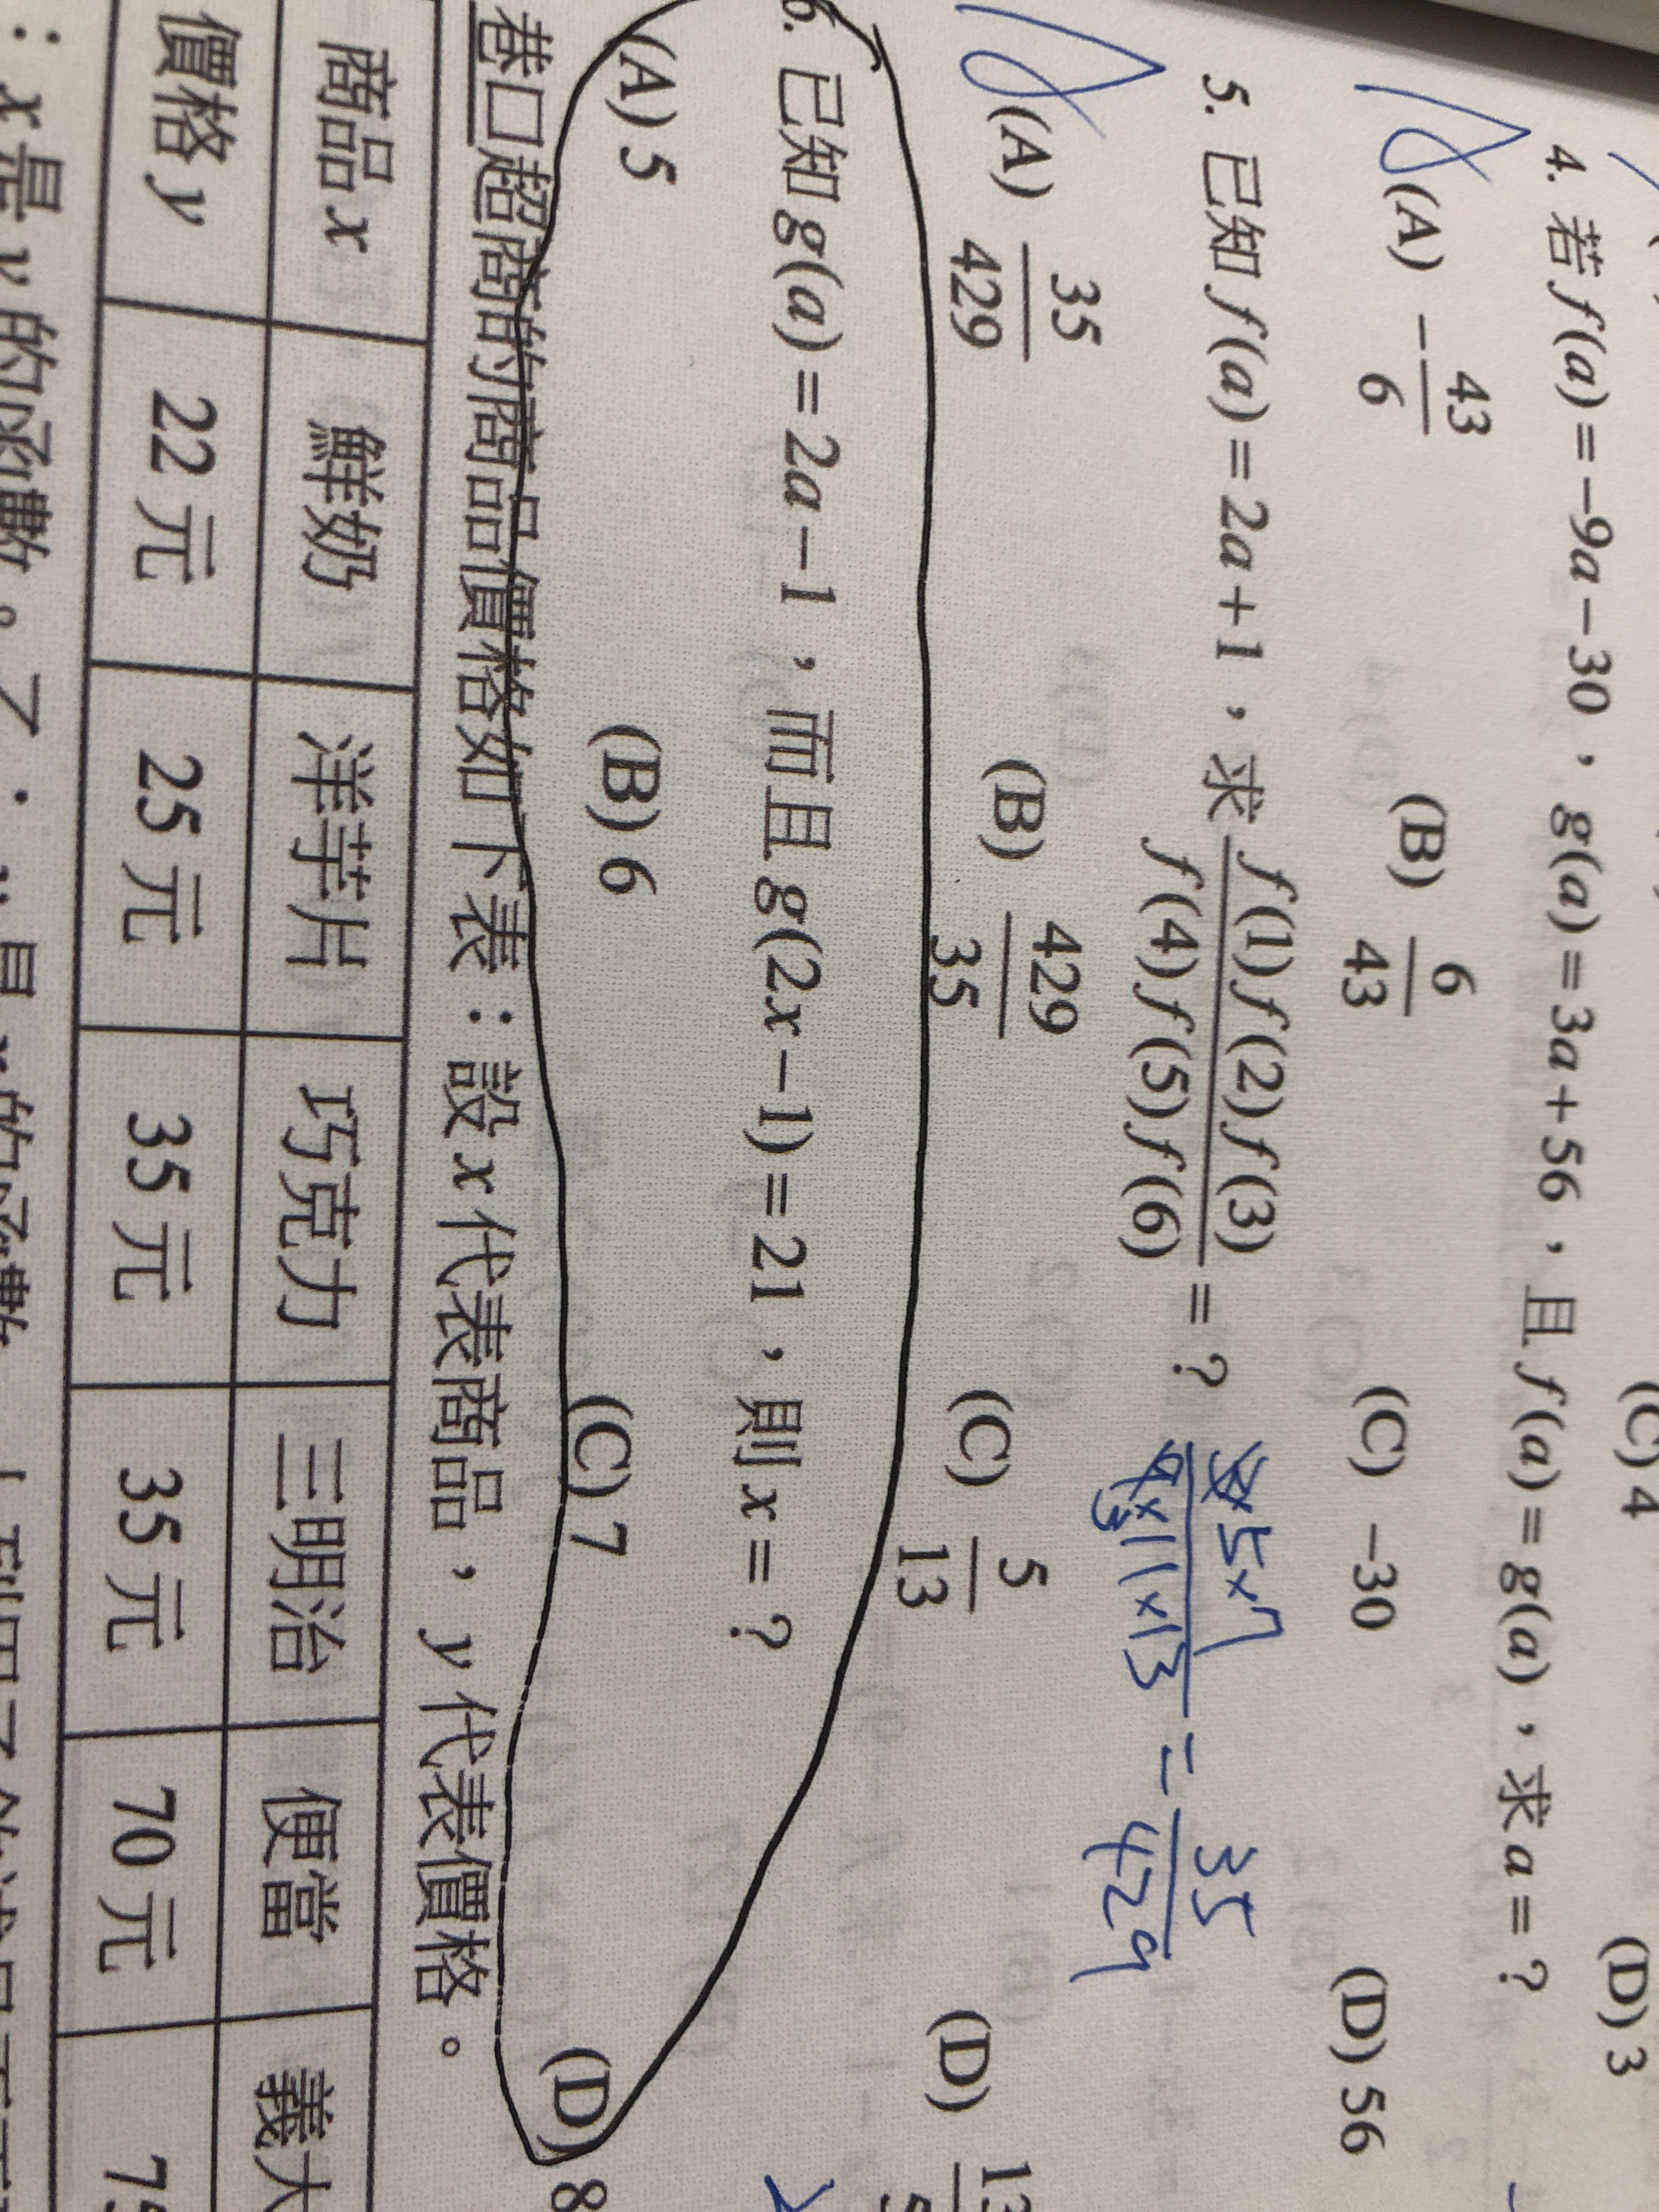 (C) 4 (D) 3
4. 若 f(a)=-9a-30，g(a)=3a+56，且 f(a)=g(a)，求 a=？
(A) -43/6 (B) 6/43 (C) -30 (D) 56
5. 已知 f(a)=2a+1，求 f(1)f(2)f(3)/f(4)f(5)f(6) =？ 3×5×7/9×11×13 = 35/429
3
(A) 35/429 (B) 429/35 (C) 5/13 (D)
6. 已知 g(a)=2a-1，而且 g(2x-1)=21，則 x=？
(A) 5 (B) 6 (C) 7 (D) 8
巷口超商的商品價格如下表：設 x 代表商品，y 代表價格。
商品 x 鮮奶 洋芋片 巧克力 三明治 便當 義大
價格 y 22 元 25 元 35 元 35 元 70 元
：x 是 y 的函數。乙：